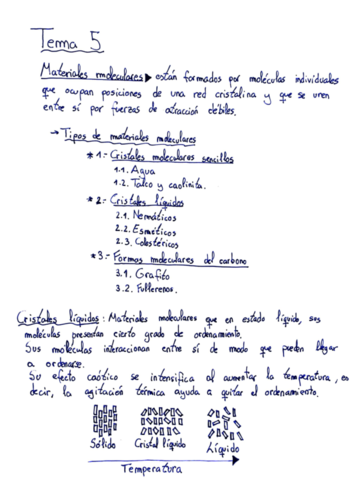 Tema 5
Materiales moleculares ▸ están formados por moléculas individuales
que ocupan posiciones de una red cristalina y que se unen
entre sí por fuerzas de atracción débiles.
→ Tipos de materiales moleculares
* 1.- Cristales moleculares sencillos
1.1. Agua
1.2. Talco y caolinita.
* 2.- Cristales líquidos
2.1. Nemáticos
2.2. Esméticos
2.3. Colestéricos
* 3.- Formas moleculares del carbono
3.1. Grafito
3.2. Fullerenos.
Cristales líquidos: Materiales moleculares que en estado líquido, sus
moléculas presentan cierto grado de ordenamiento.
Sus moléculas interaccionan entre sí de modo que pueden llegar
a ordenarse.
Su efecto caótico se intensifica al aumentar la temperatura, es
decir, la agitación térmica ayuda a quitar el ordenamiento.
Sólido Cristal líquido Líquido
Temperatura